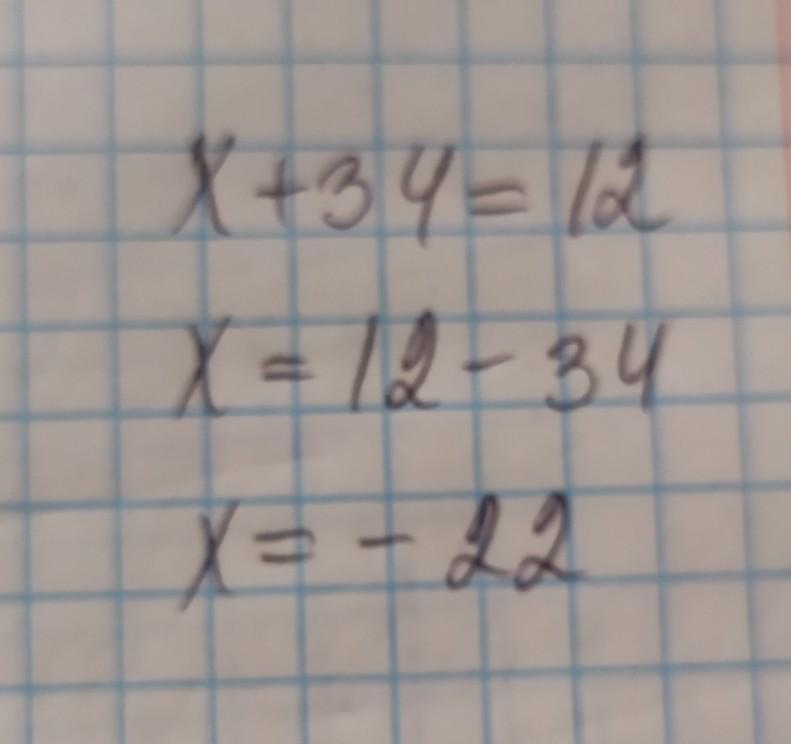 x + 34 = 12
x = 12 - 34
x = - 22